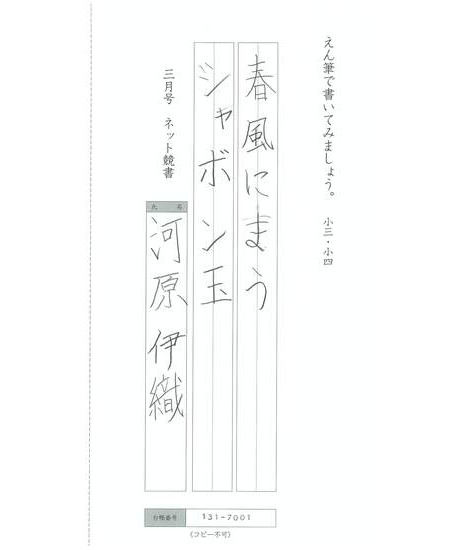 えん筆で書いてみましょう。 小三・小四
春風にまう
シャボン玉
三月号 ネット競書
氏名
河原伊織
台帳番号 131-7001
(コピー不可)